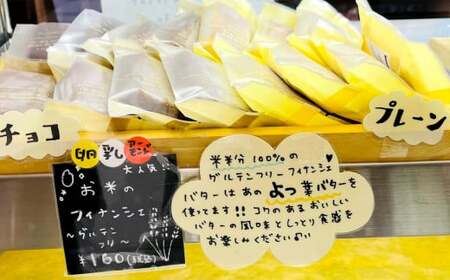 チョコ
プレーン
卵 乳 アーモンド
大人気!!
お米の
フィナンシェ
〜グルテン
フリー〜
¥160(税込)
米粉100%の
グルテンフリーフィナンシェ
バターはあのよつ葉バターを
使ってます!!コクのあるおいしい
バターの風味としっとり食感を
お楽しみください